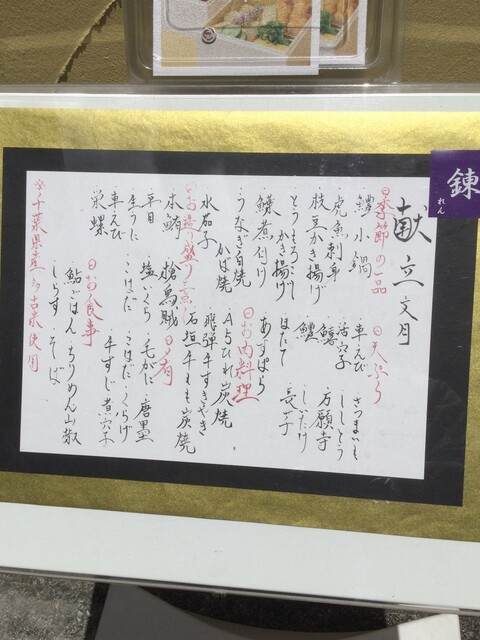 錬
れん
献立 文月
◎季節の一品
・鱧小鍋
・虎魚刺身
・枝豆かき揚げ
・とうもろこしかき揚げ
・鰈煮付け
・うなぎ白焼
かば焼
・水茄子
◎お造り盛り
・本鮪
・槍烏賊
・平目
・塩いくら
・生うに
・こはだ
・車えび
・栄螺
◎天ぷら
・車えび
・さつまいも
・活穴子
・ししとう
・鱚
・万願寺
・鱧
・しいたけ
・ほたて
・長芋
・あすぱら
◎お肉料理
・A5ひれ炭焼
・飛騨牛すきやき
・石垣牛もも炭焼
◎肴
・毛がに
・唐墨
・こはだ
・くらげ
・牛すじ
・煮穴子
◎お食事
・鮎ごはん
・ちりめん山椒
・しらす
・そば
※千葉県産多古米使用